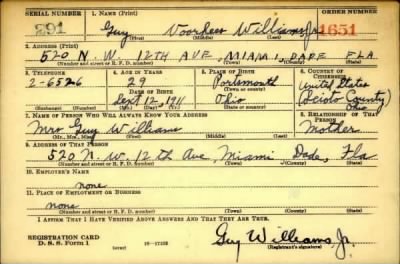 SERIAL NUMBER 1. NAME (Print) ORDER NUMBER
291 Guy Voorhees Williams Jr. 1651
(First) (Middle) (Last)
2. ADDRESS (Print)
520 N. W. 12TH AVE, MIAMI, DADE FLA
(Number and street or R. F. D. number) (Town) (County) (State)
3. TELEPHONE 4. AGE IN YEARS 5. PLACE OF BIRTH 6. COUNTRY OF CITIZENSHIP
2-6526 29 Portsmouth United States
DATE OF BIRTH (Town or county) Scioto County
Sept. 12, 1911 Ohio Ohio
(Exchange) (No.) (Mo.) (Day) (Yr.) (State or country)
7. NAME OF PERSON WHO WILL ALWAYS KNOW YOUR ADDRESS 8. RELATIONSHIP OF THAT PERSON
Mrs. Guy Williams Mother
(Mr., Mrs., Miss) (First) (Middle) (Last)
9. ADDRESS OF THAT PERSON
520 N. W. 12th Ave, Miami Dade, Fla
(Number and street or R. F. D. number) (Town) (County) (State)
10. EMPLOYER'S NAME
none
11. PLACE OF EMPLOYMENT OR BUSINESS
none
(Number and street or R. F. D. number) (Town) (County) (State)
I AFFIRM THAT I HAVE VERIFIED ABOVE ANSWERS AND THAT THEY ARE TRUE.
REGISTRATION CARD
D. S. S. Form 1 16-17105 Guy Williams, Jr.
(Registrant's signature)